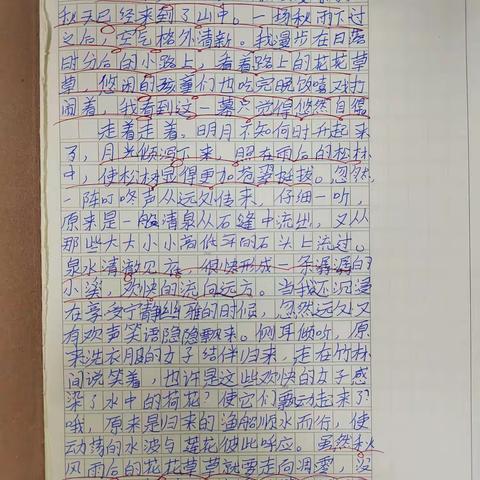 秋天已经来到了山中。一场秋雨下过
之后，空气格外清新。我漫步在日落
时分后的小路上，看着路上的花花草
草，悠闲的孩童们也吃完晚饭嬉对打
闹着，我看到这一幕，觉得悠然自得
走着走着。明月不知何时升起来
了，月光倾泻下来，照在雨后的松林
中，使松林显得更加苍翠挺拔。忽然
一阵叮咚声从远处传来，仔细一听，
原来是一般清泉从石缝中流出，又从
那些大大小小高低不平的石头上流过。
泉水清澈见底，很快形成一条潺潺的
小溪，欢快的流向远方。当我还沉浸
在享受宁静幽雅的时候，忽然远处又
有欢声笑语隐隐飘来。侧耳倾听，原
来洗衣服的女子结伴归来，走在竹林
间说笑着，也许是这些欢快的女子感
染了水中的荷花？使它们飘动起来了
哦，原来是归来的渔船顺水而行，使
动荡的水波与莲花彼此呼应。虽然秋
风雨后的花花草草就要走向凋零，没